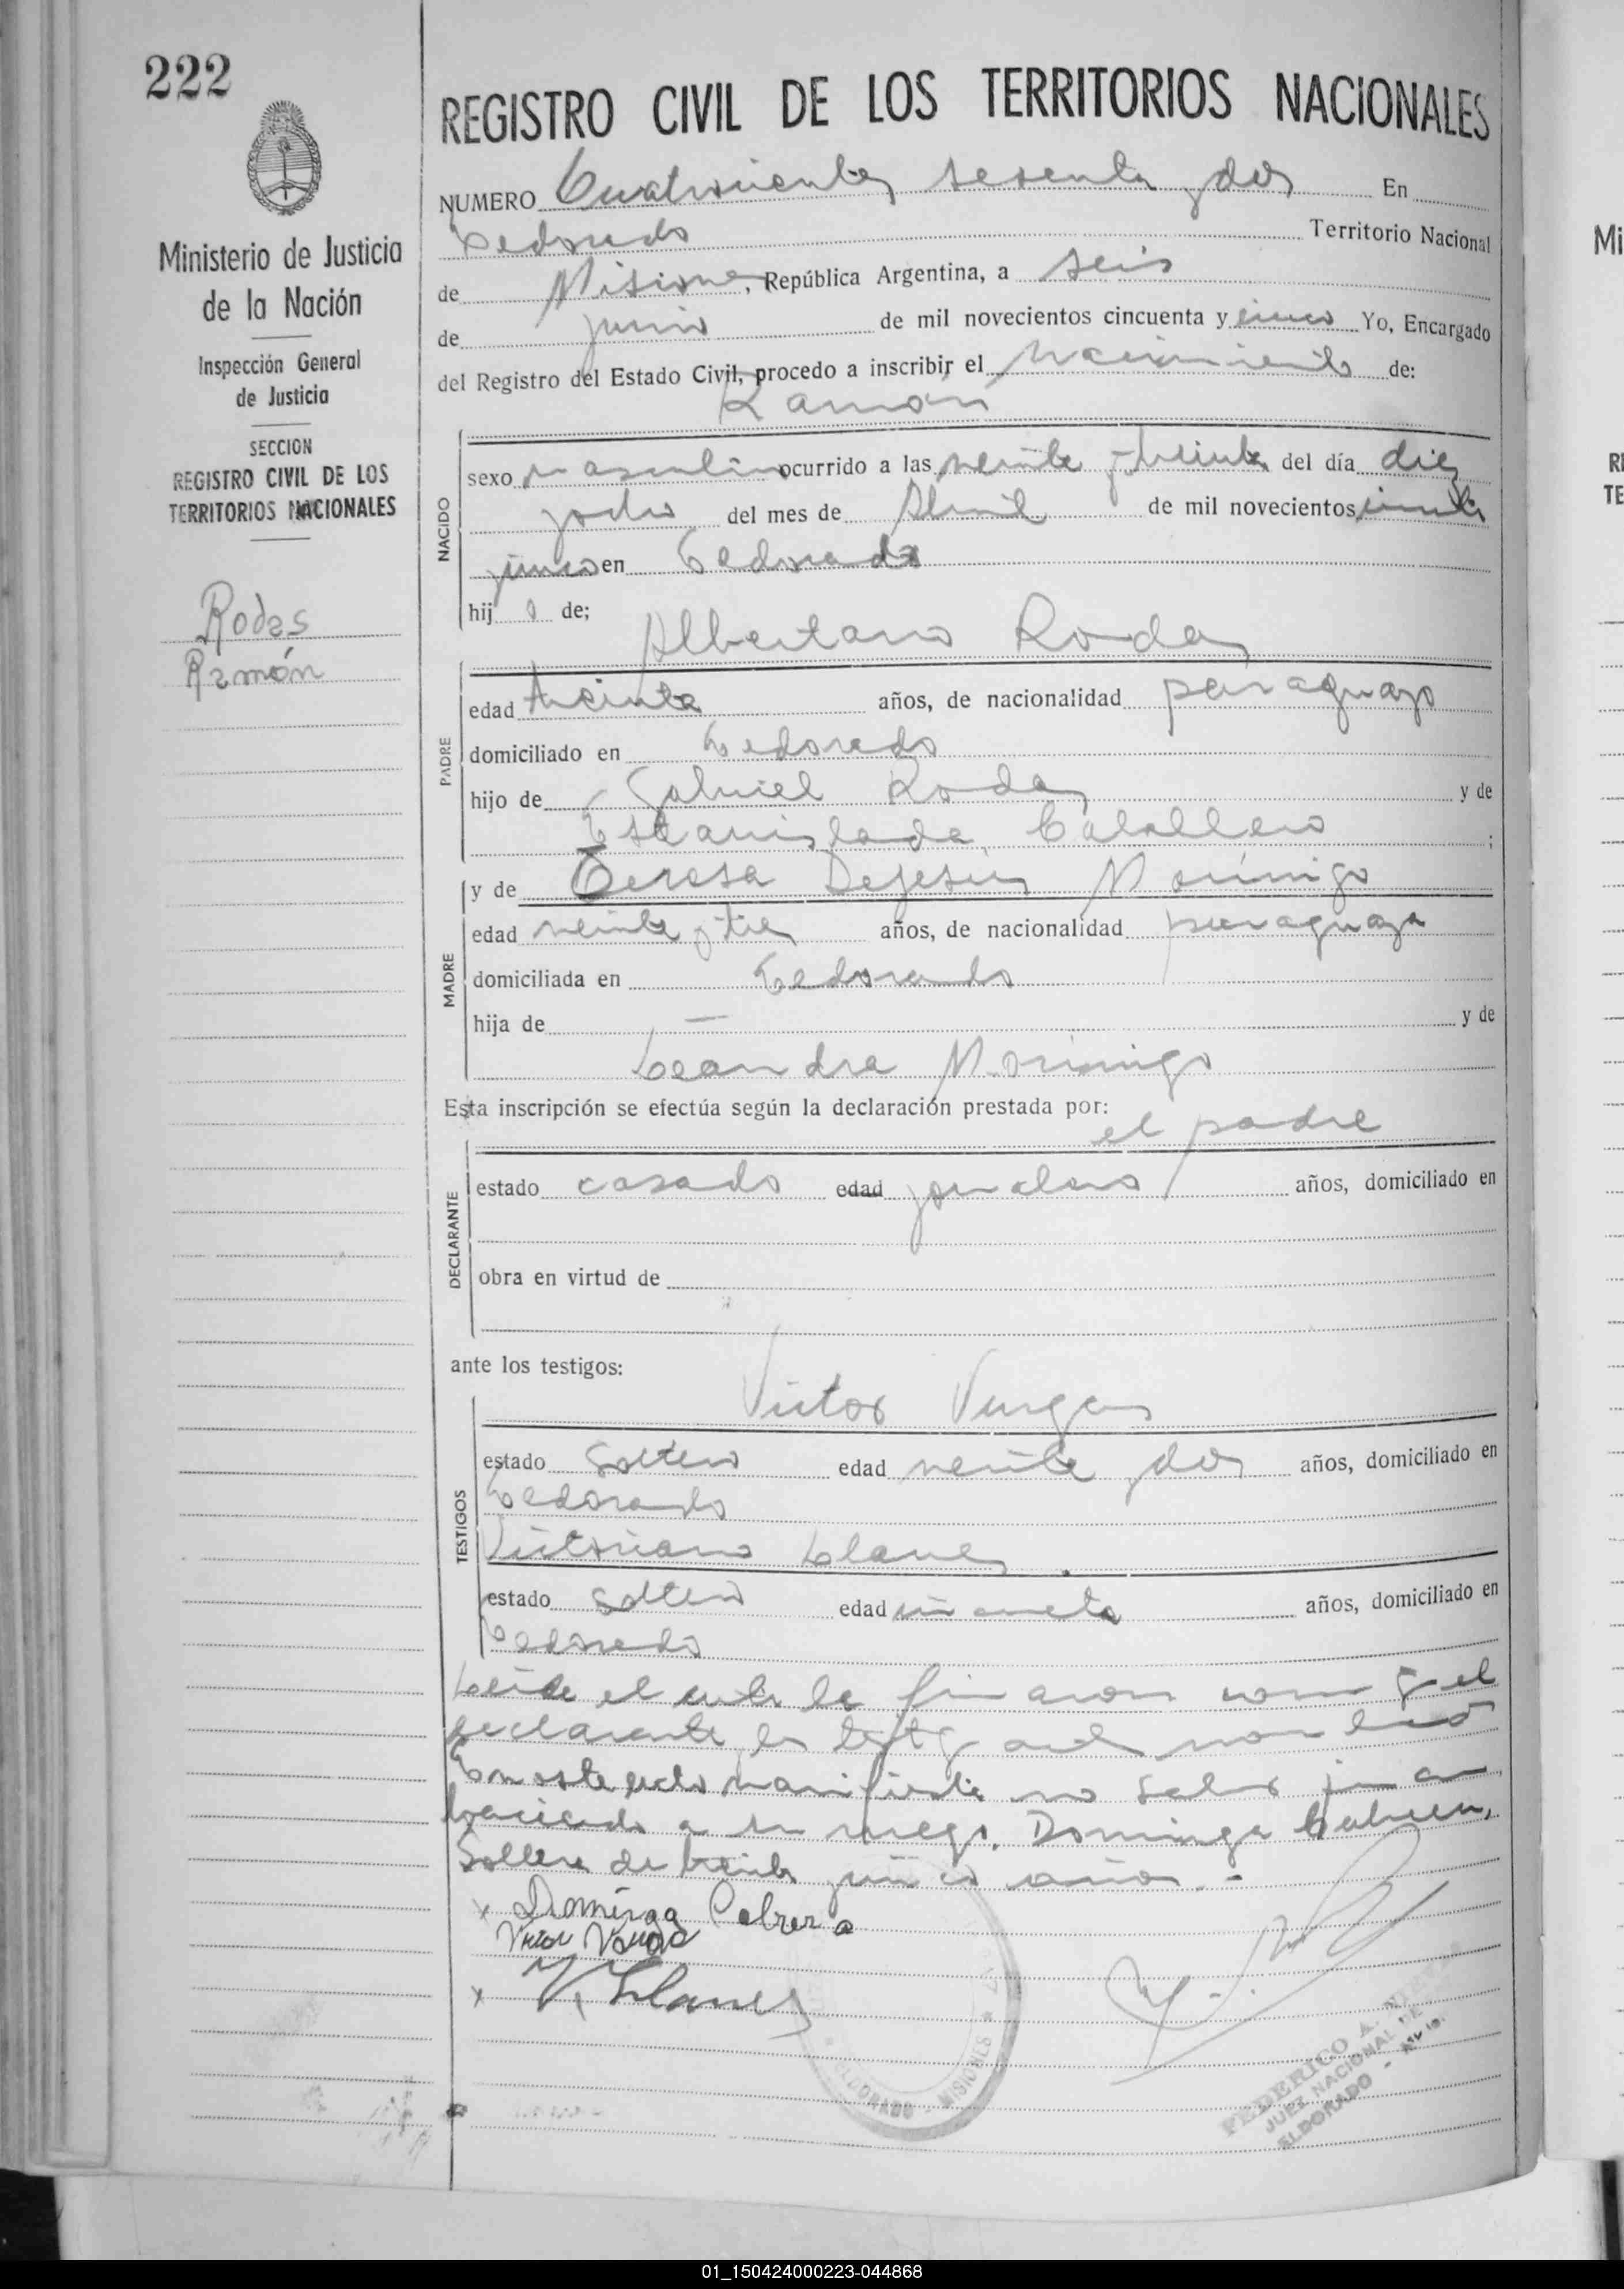 222
REGISTRO CIVIL DE LOS TERRITORIOS NACIONALES
Ministerio de Justicia
de la Nación
Inspección General
de Justicia
SECCION
REGISTRO CIVIL DE LOS
TERRITORIOS NACIONALES
Rodas
Ramón
NUMERO Cuatrocientos sesenta y dos En
Eldorado Territorio Nacional
de Misiones, República Argentina, a seis
de junio de mil novecientos cincuenta y cinco Yo, Encargado
del Registro del Estado Civil, procedo a inscribir el nacimiento de:
Ramón
NACIDO
sexo masculino ocurrido a las veinte y treinta del día diez
y ocho del mes de Abril de mil novecientos cincuenta
y cinco en Eldorado
hijo de;
Albertano Rodas
PADRE
edad treinta años, de nacionalidad paraguayo
domiciliado en Eldorado
hijo de Gabriel Rodas y de
Estanislada Caballero ;
y de Teresa Dejesus Morínigo
MADRE
edad veinte y tres años, de nacionalidad paraguaya
domiciliada en Eldorado
hija de — y de
Leandra Morinigo
Esta inscripción se efectúa según la declaración prestada por:
el padre
DECLARANTE
estado casado edad jornalero años, domiciliado en
obra en virtud de
ante los testigos:
Victor Vargas
TESTIGOS
estado soltero edad veinte y dos años, domiciliado en
Eldorado
Victoriano Llanes
estado soltero edad cincuenta años, domiciliado en
Eldorado
Leída el acta la firmaron conmigo el
declarante, los testigos
En este acto manifiesta no saber firmar
haciendo a su ruego, Dominga Cabrera,
Soltera de treinta y cinco años.-
x Dominga Cabrera
Victor Vargas
x V. Llanes
ELDORADO - MISIONES
FEDERICO A.
JUEZ NACIONAL DE
ELDORADO -
01_150424000223-044868